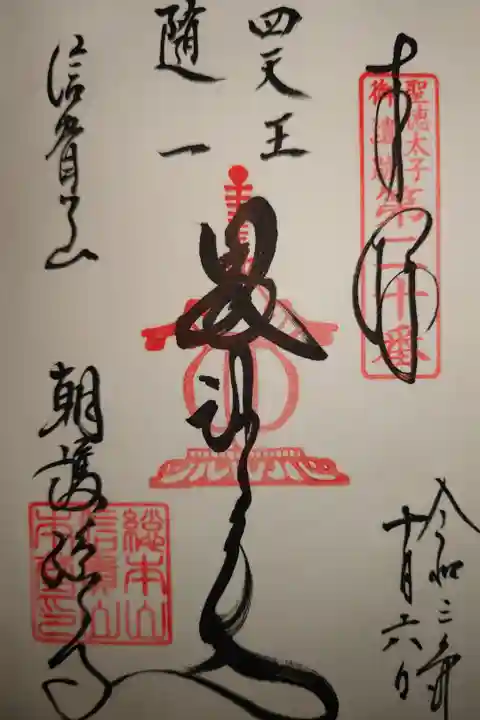 奉拝
聖徳太子
御遺跡
第二十番
四天王
随一
毘沙門天
信貴山
朝護孫子寺
令和三年
十月六日
總本山
信貴山